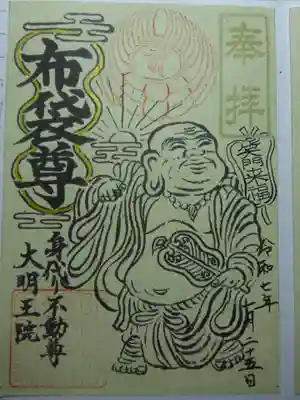 奉拝
布袋尊
笑門来福
令和七年
二十五日
身代り不動尊
大明王院